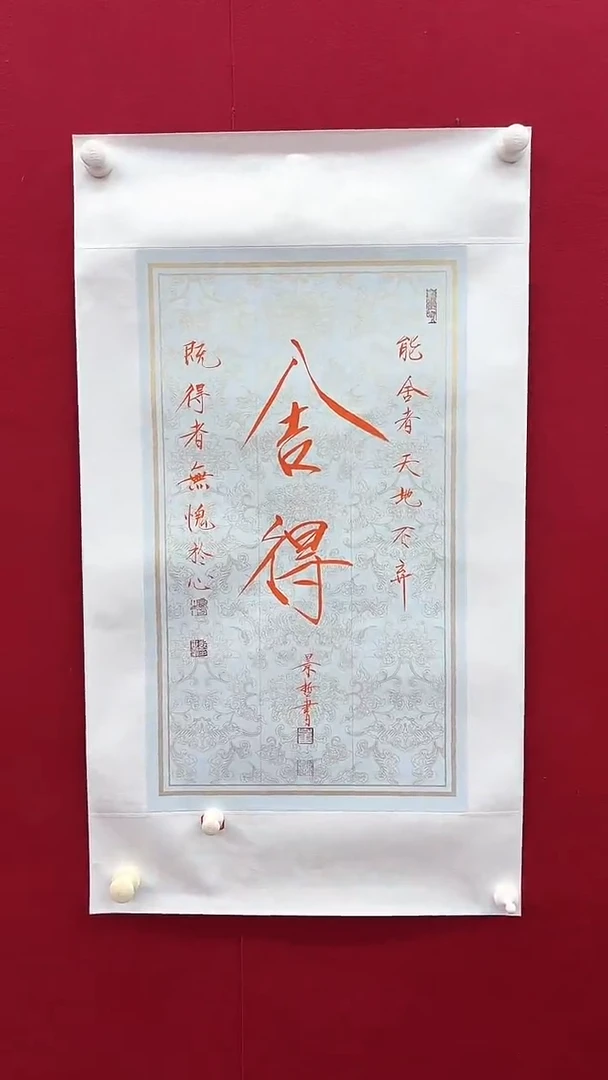 能舍者天地不弃
舍得
景哲書
既得者無愧於心